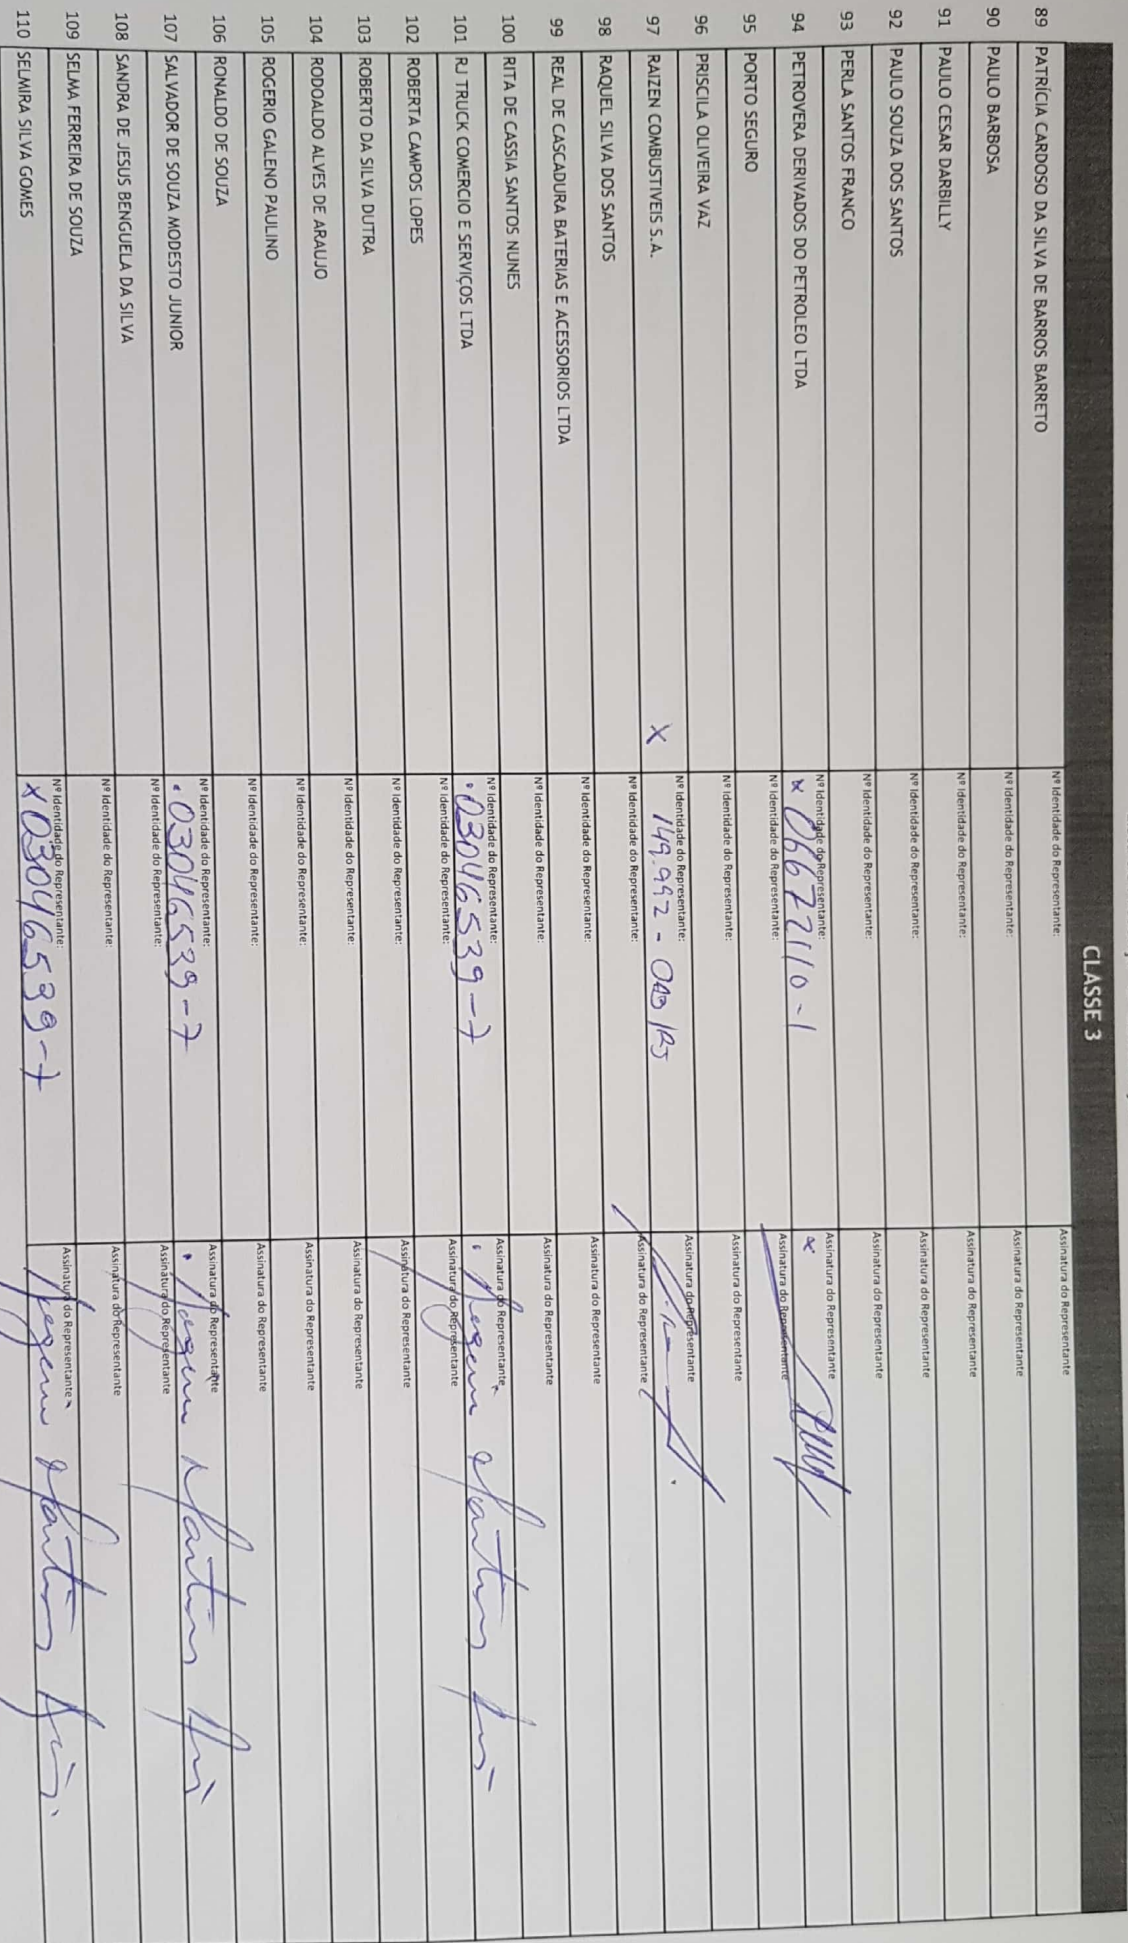 CLASSE 3
89 PATRÍCIA CARDOSO DA SILVA DE BARROS BARRETO Nº Identidade do Representante: Assinatura do Representante
90 PAULO BARBOSA Nº Identidade do Representante: Assinatura do Representante
91 PAULO CESAR DARBILLY Nº Identidade do Representante: Assinatura do Representante
92 PAULO SOUZA DOS SANTOS Nº Identidade do Representante: Assinatura do Representante
93 PERLA SANTOS FRANCO Nº Identidade do Representante: Assinatura do Representante
94 PETROVERA DERIVADOS DO PETROLEO LTDA Nº Identidade do Representante: x 06672110-1 Assinatura do Representante x
95 PORTO SEGURO Nº Identidade do Representante: Assinatura do Representante
96 PRISCILA OLIVEIRA VAZ Nº Identidade do Representante: Assinatura do Representante
97 RAIZEN COMBUSTIVEIS S.A. X Nº Identidade do Representante: 149.992 - OAB/RJ Assinatura do Representante
98 RAQUEL SILVA DOS SANTOS Nº Identidade do Representante: Assinatura do Representante
99 REAL DE CASCADURA BATERIAS E ACESSORIOS LTDA Nº Identidade do Representante: Assinatura do Representante
100 RITA DE CASSIA SANTOS NUNES Nº Identidade do Representante: Assinatura do Representante
101 RJ TRUCK COMERCIO E SERVIÇOS LTDA Nº Identidade do Representante: .03046539-7 Assinatura do Representante
102 ROBERTA CAMPOS LOPES Nº Identidade do Representante: Assinatura do Representante
103 ROBERTO DA SILVA DUTRA Nº Identidade do Representante: Assinatura do Representante
104 RODOALDO ALVES DE ARAUJO Nº Identidade do Representante: Assinatura do Representante
105 ROGERIO GALENO PAULINO Nº Identidade do Representante: Assinatura do Representante
106 RONALDO DE SOUZA Nº Identidade do Representante: Assinatura do Representante
107 SALVADOR DE SOUZA MODESTO JUNIOR Nº Identidade do Representante: .03046539-7 Assinatura do Representante
108 SANDRA DE JESUS BENGUELA DA SILVA Nº Identidade do Representante: Assinatura do Representante
109 SELMA FERREIRA DE SOUZA Nº Identidade do Representante: Assinatura do Representante
110 SELMIRA SILVA GOMES Nº Identidade do Representante: x 03046539-7 Assinatura do Representante